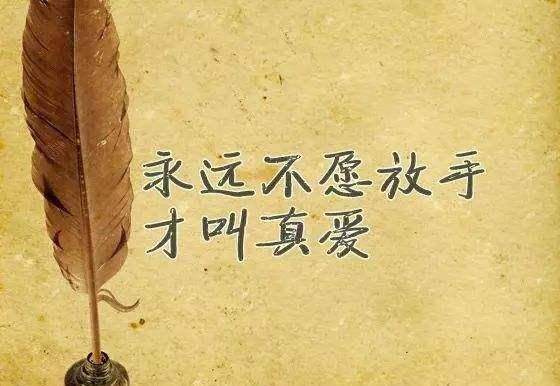 永远不愿放手
才叫真爱